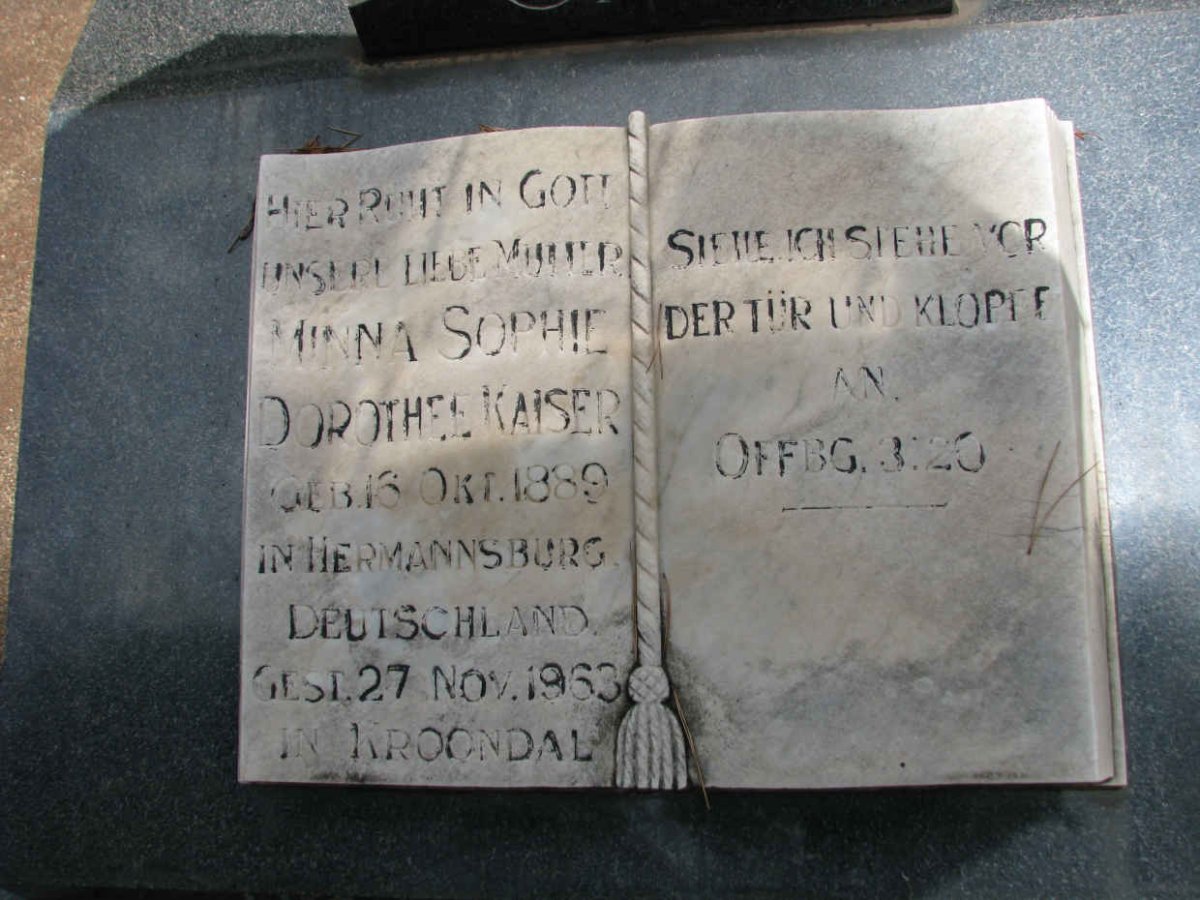 HIER RUHT IN GOTT
UNSERE LIEBE MUTTER
MINNA SOPHIE
DOROTHEE KAISER
GEB. 16 OKT. 1889
IN HERMANNSBURG.
DEUTSCHLAND.
GEST. 27 NOV. 1963
IN KROONDAL
SIEHE, ICH STEHE VOR
DER TÜR UND KLOPFE
AN.
OFFBG. 3:20